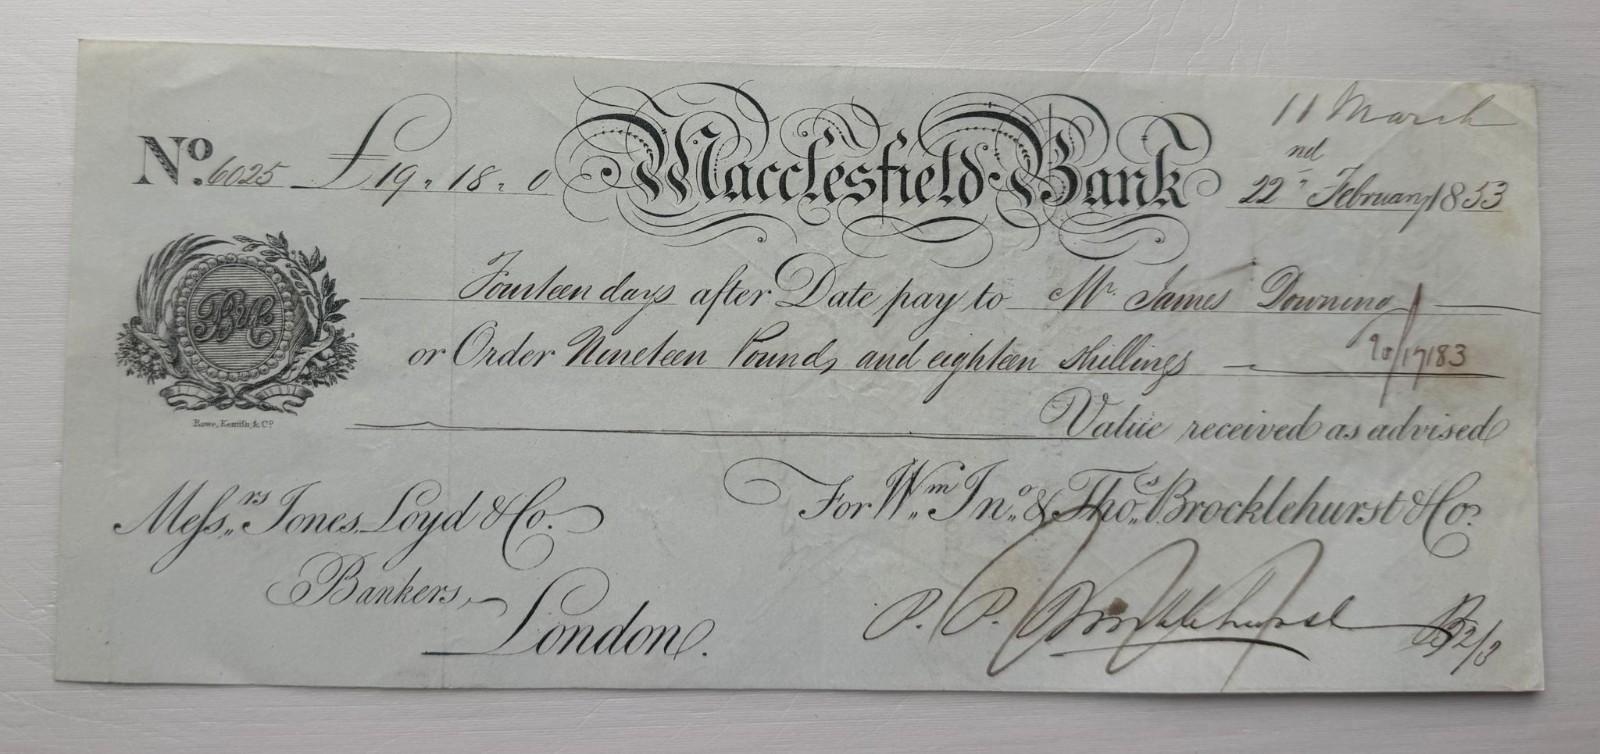 11 March
No. 6025 £19 " 18 " 0 Macclesfield Bank 22nd February 1853
Fourteen days after Date pay to Mr. James Downing
or Order Nineteen Pounds and eighteen shillings
B&C
Rowe, Kentish, & Co.
Value received as advised
Messrs. Jones, Loyd & Co. For Wm. Jno. & Thos. Brocklehurst & Co.
Bankers,
London. P. P. Brocklehurst